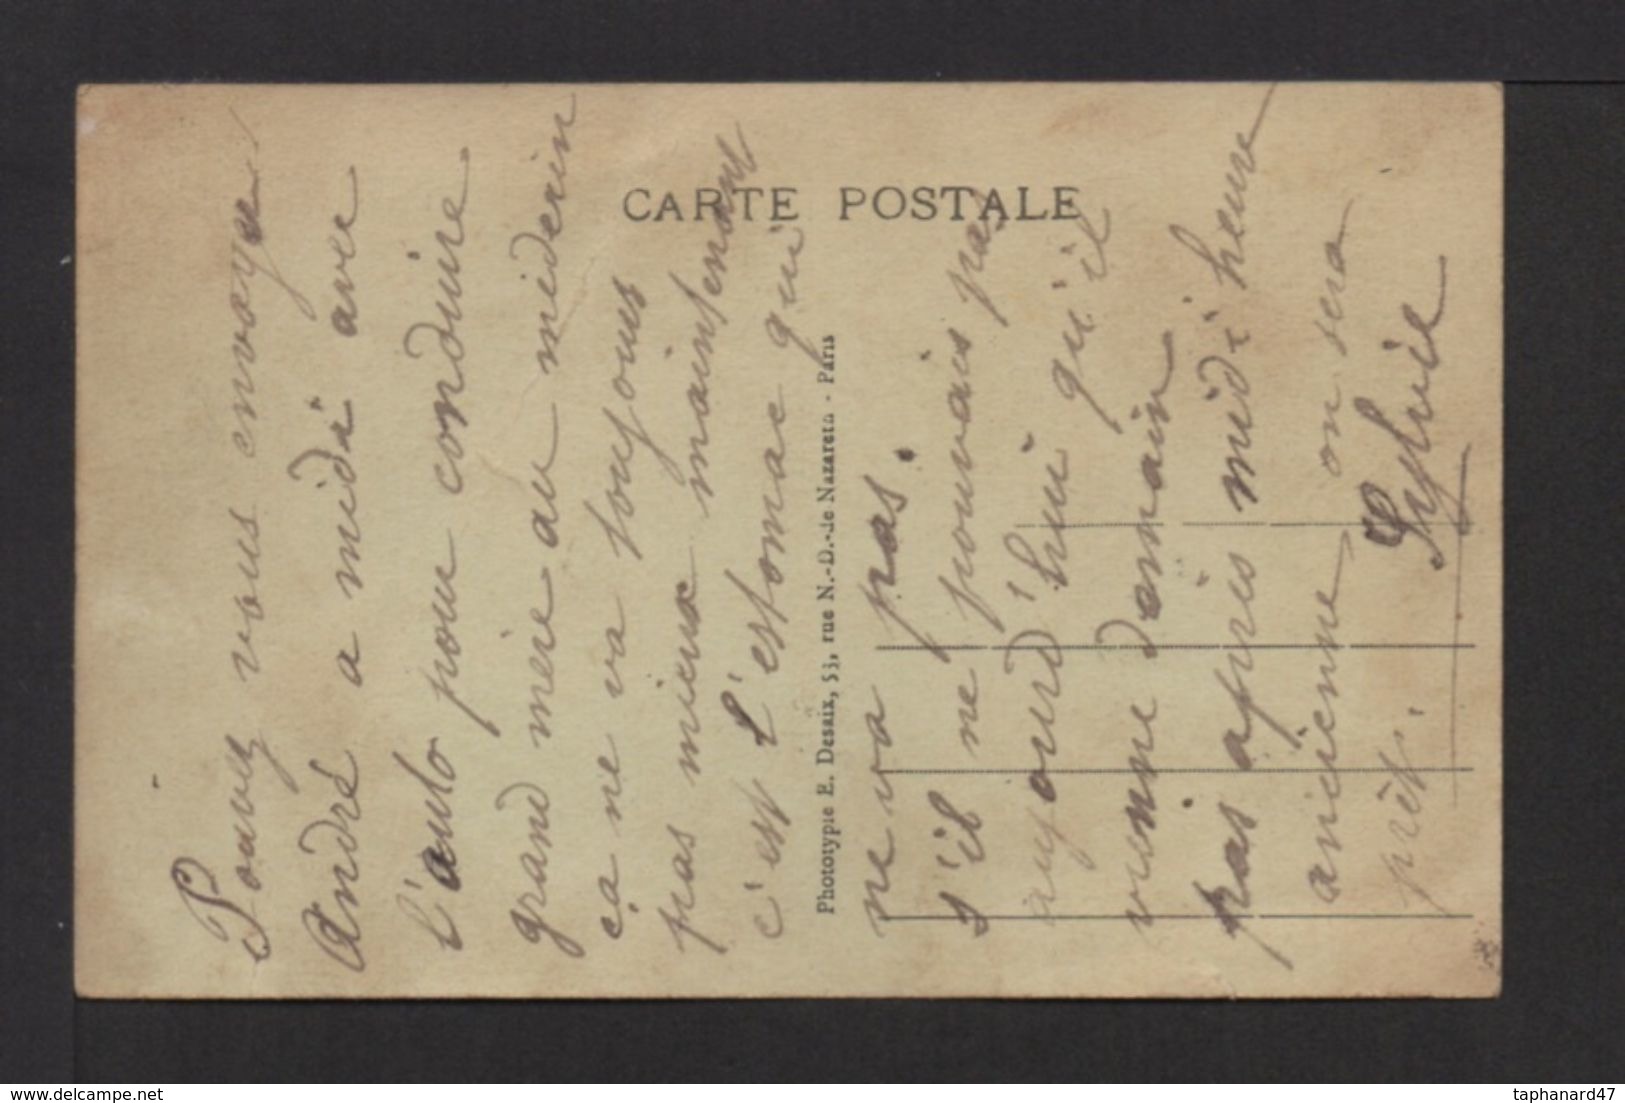 CARTE POSTALE
Pouvez vous envoyer
André a midi avec
l'auto pour conduire
grand mère au médecin
ça ne va toujours
pas mieux maintenant
c'est l'estomac qui
ne va pas.
s'il ne pouvais pas
aujourd'hui qu'il
vienne demain
pas après midi heure
ancienne on sera
prêt.
Sylvie
Phototypie E. Desaix, 53, rue N.-D.-de Nazareth - Paris
taphanard47